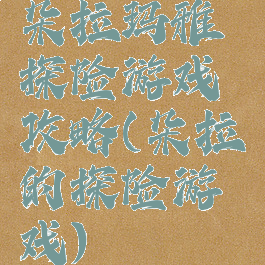 柴拉玛雅
探险游戏
攻略(柴拉
的探险游
戏)